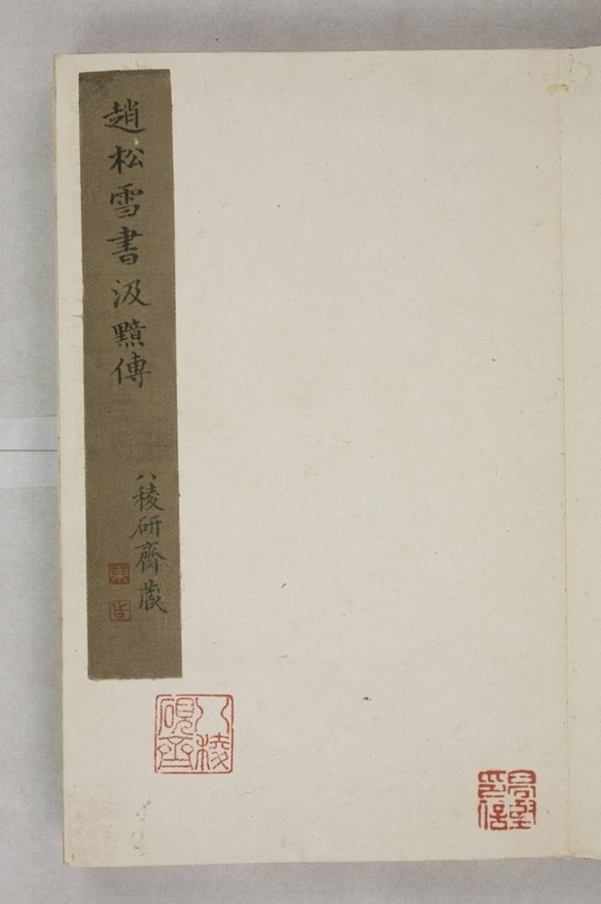 趙松雪書汲黯傳
八稜研齋藏
八稜硯齋